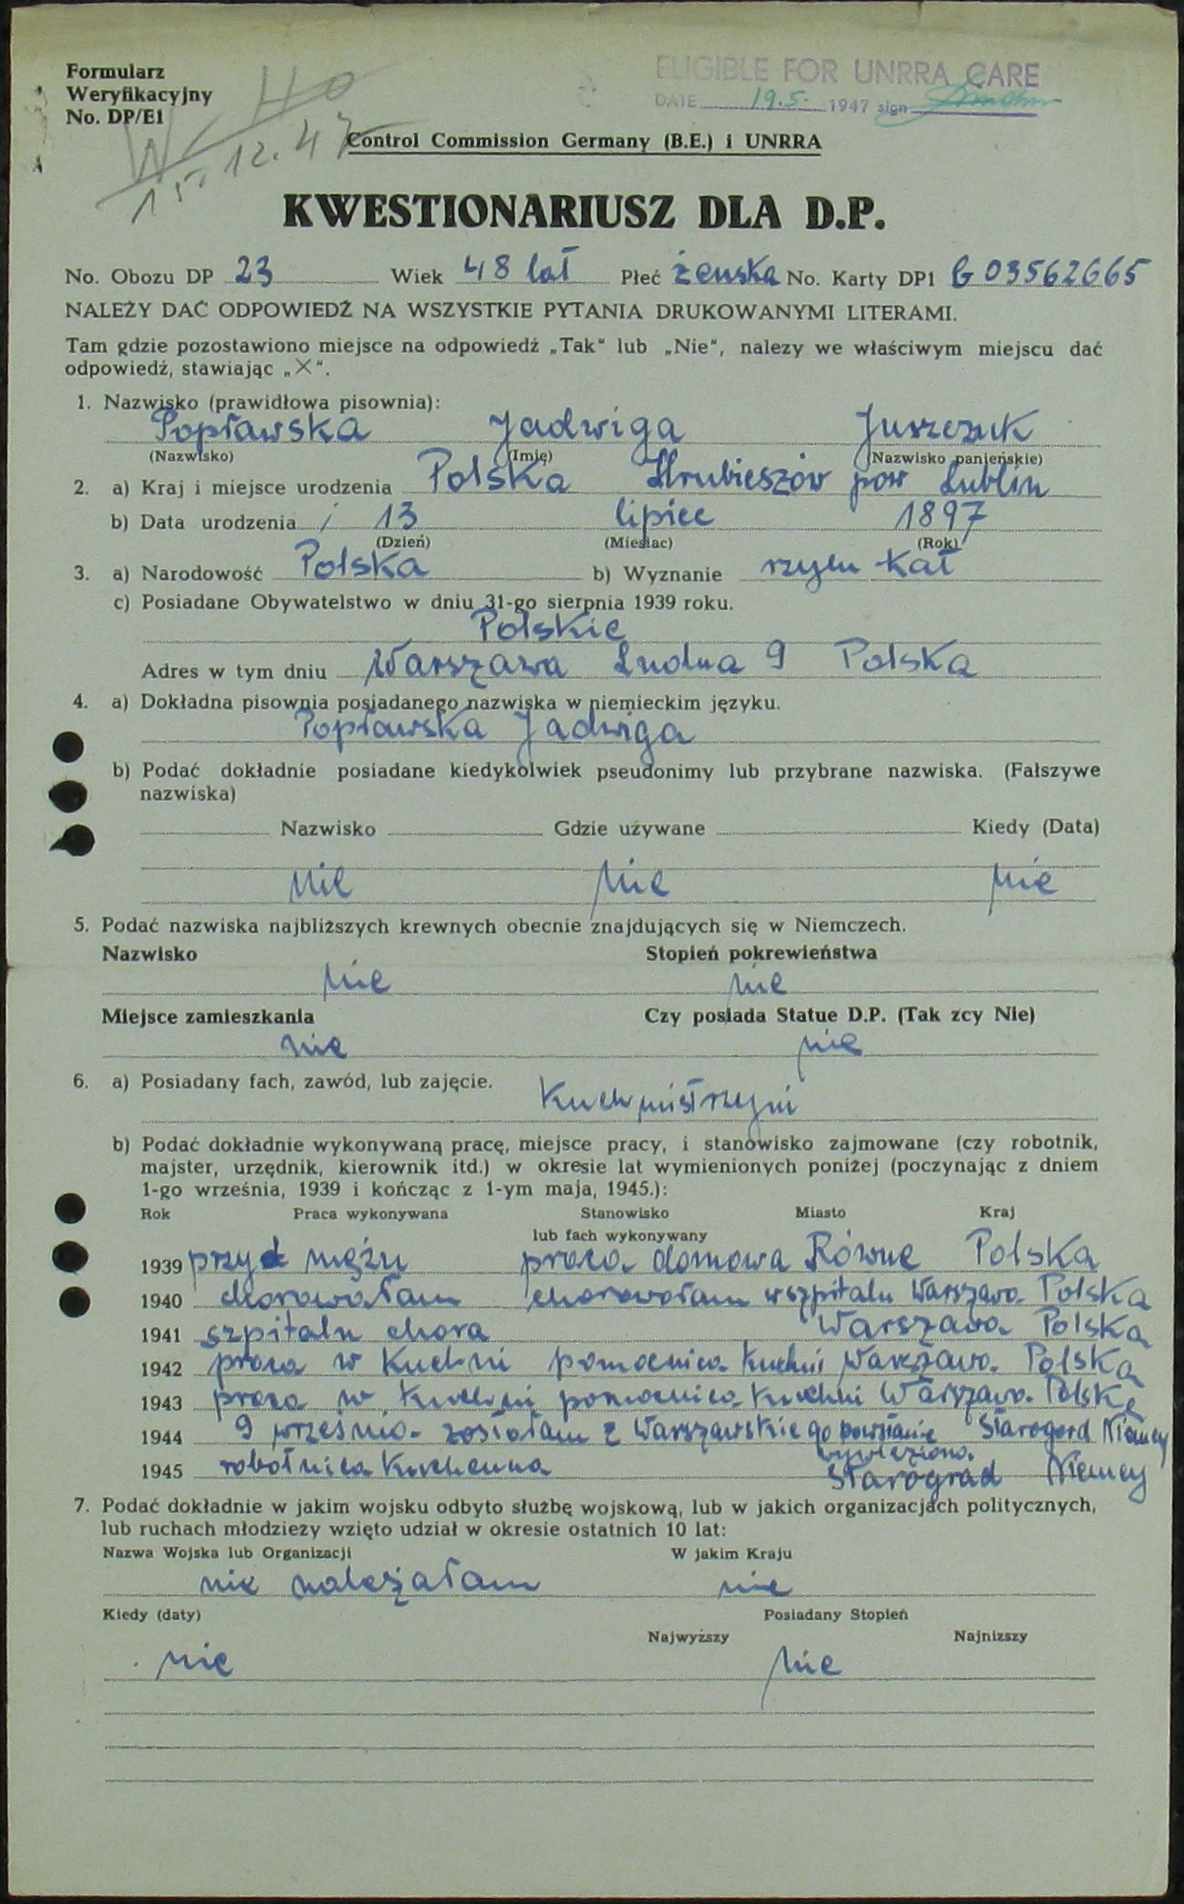 Formularz
Weryfikacyjny
No. DP/E1
15. 12. 47
ELIGIBLE FOR UNRRA CARE
DATE 19.5. 1947 sign
Control Commission Germany (B.E.) i UNRRA
KWESTIONARIUSZ DLA D.P.
No. Obozu DP 23 Wiek 48 lat Płeć żenska No. Karty DP1 G03562665
NALEŻY DAĆ ODPOWIEDŹ NA WSZYSTKIE PYTANIA DRUKOWANYMI LITERAMI.
Tam gdzie pozostawiono miejsce na odpowiedź „Tak“ lub „Nie“, nalezy we właściwym miejscu dać
odpowiedź, stawiając „X“.
1. Nazwisko (prawidłowa pisownia):
Popławska Jadwiga Juszczuk
(Nazwisko) (Imię) (Nazwisko panieńskie)
2. a) Kraj i miejsce urodzenia Polska Hrubieszów pow Lublin
b) Data urodzenia 13 lipiec 1897
(Dzień) (Miesiac) (Rok)
3. a) Narodowość Polska b) Wyznanie rzym kat
c) Posiadane Obywatelstwo w dniu 31-go sierpnia 1939 roku.
Polskie
Adres w tym dniu Warszawa Ludna 9 Polska
4. a) Dokładna pisownia posiadanego nazwiska w niemieckim języku.
Popławska Jadwiga
b) Podać dokładnie posiadane kiedykolwiek pseudonimy lub przybrane nazwiska. (Fałszywe
nazwiska)
Nazwisko Gdzie używane Kiedy (Data)
nie nie nie
5. Podać nazwiska najbliższych krewnych obecnie znajdujących się w Niemczech.
Nazwisko Stopień pokrewieństwa
nie nie
Miejsce zamieszkania Czy posiada Statue D.P. (Tak zcy Nie)
nie nie
6. a) Posiadany fach, zawód, lub zajęcie.
Kuchmistrzyni
b) Podać dokładnie wykonywaną pracę, miejsce pracy, i stanowisko zajmowane (czy robotnik,
majster, urzędnik, kierownik itd.) w okresie lat wymienionych poniżej (poczynając z dniem
1-go września, 1939 i kończąc z 1-ym maja, 1945.):
Rok Praca wykonywana Stanowisko Miasto Kraj
lub fach wykonywany
1939 przy mężu praca domowa Równe Polska
1940 chorowałam chorowałam w szpitalu Warszawa Polska
1941 szpitalu chora Warszawa Polska
1942 praca w Kuchni pomocnica kuchni Warszawa Polska
1943 praca w Kuchni pomocnica kuchni Warszawa Polska
1944 9 września zostałam z Warszawskiego powstanie Starogard Niemcy
wywieziona
1945 robotnica Kuchenna Starograd Niemcy
7. Podać dokładnie w jakim wojsku odbyto służbę wojskową, lub w jakich organizacjach politycznych,
lub ruchach młodzieży wzięto udział w okresie ostatnich 10 lat:
Nazwa Wojska lub Organizacji W jakim Kraju
nie należałam nie
Kiedy (daty) Posiadany Stopień
Najwyższy Najniszy
nie nie